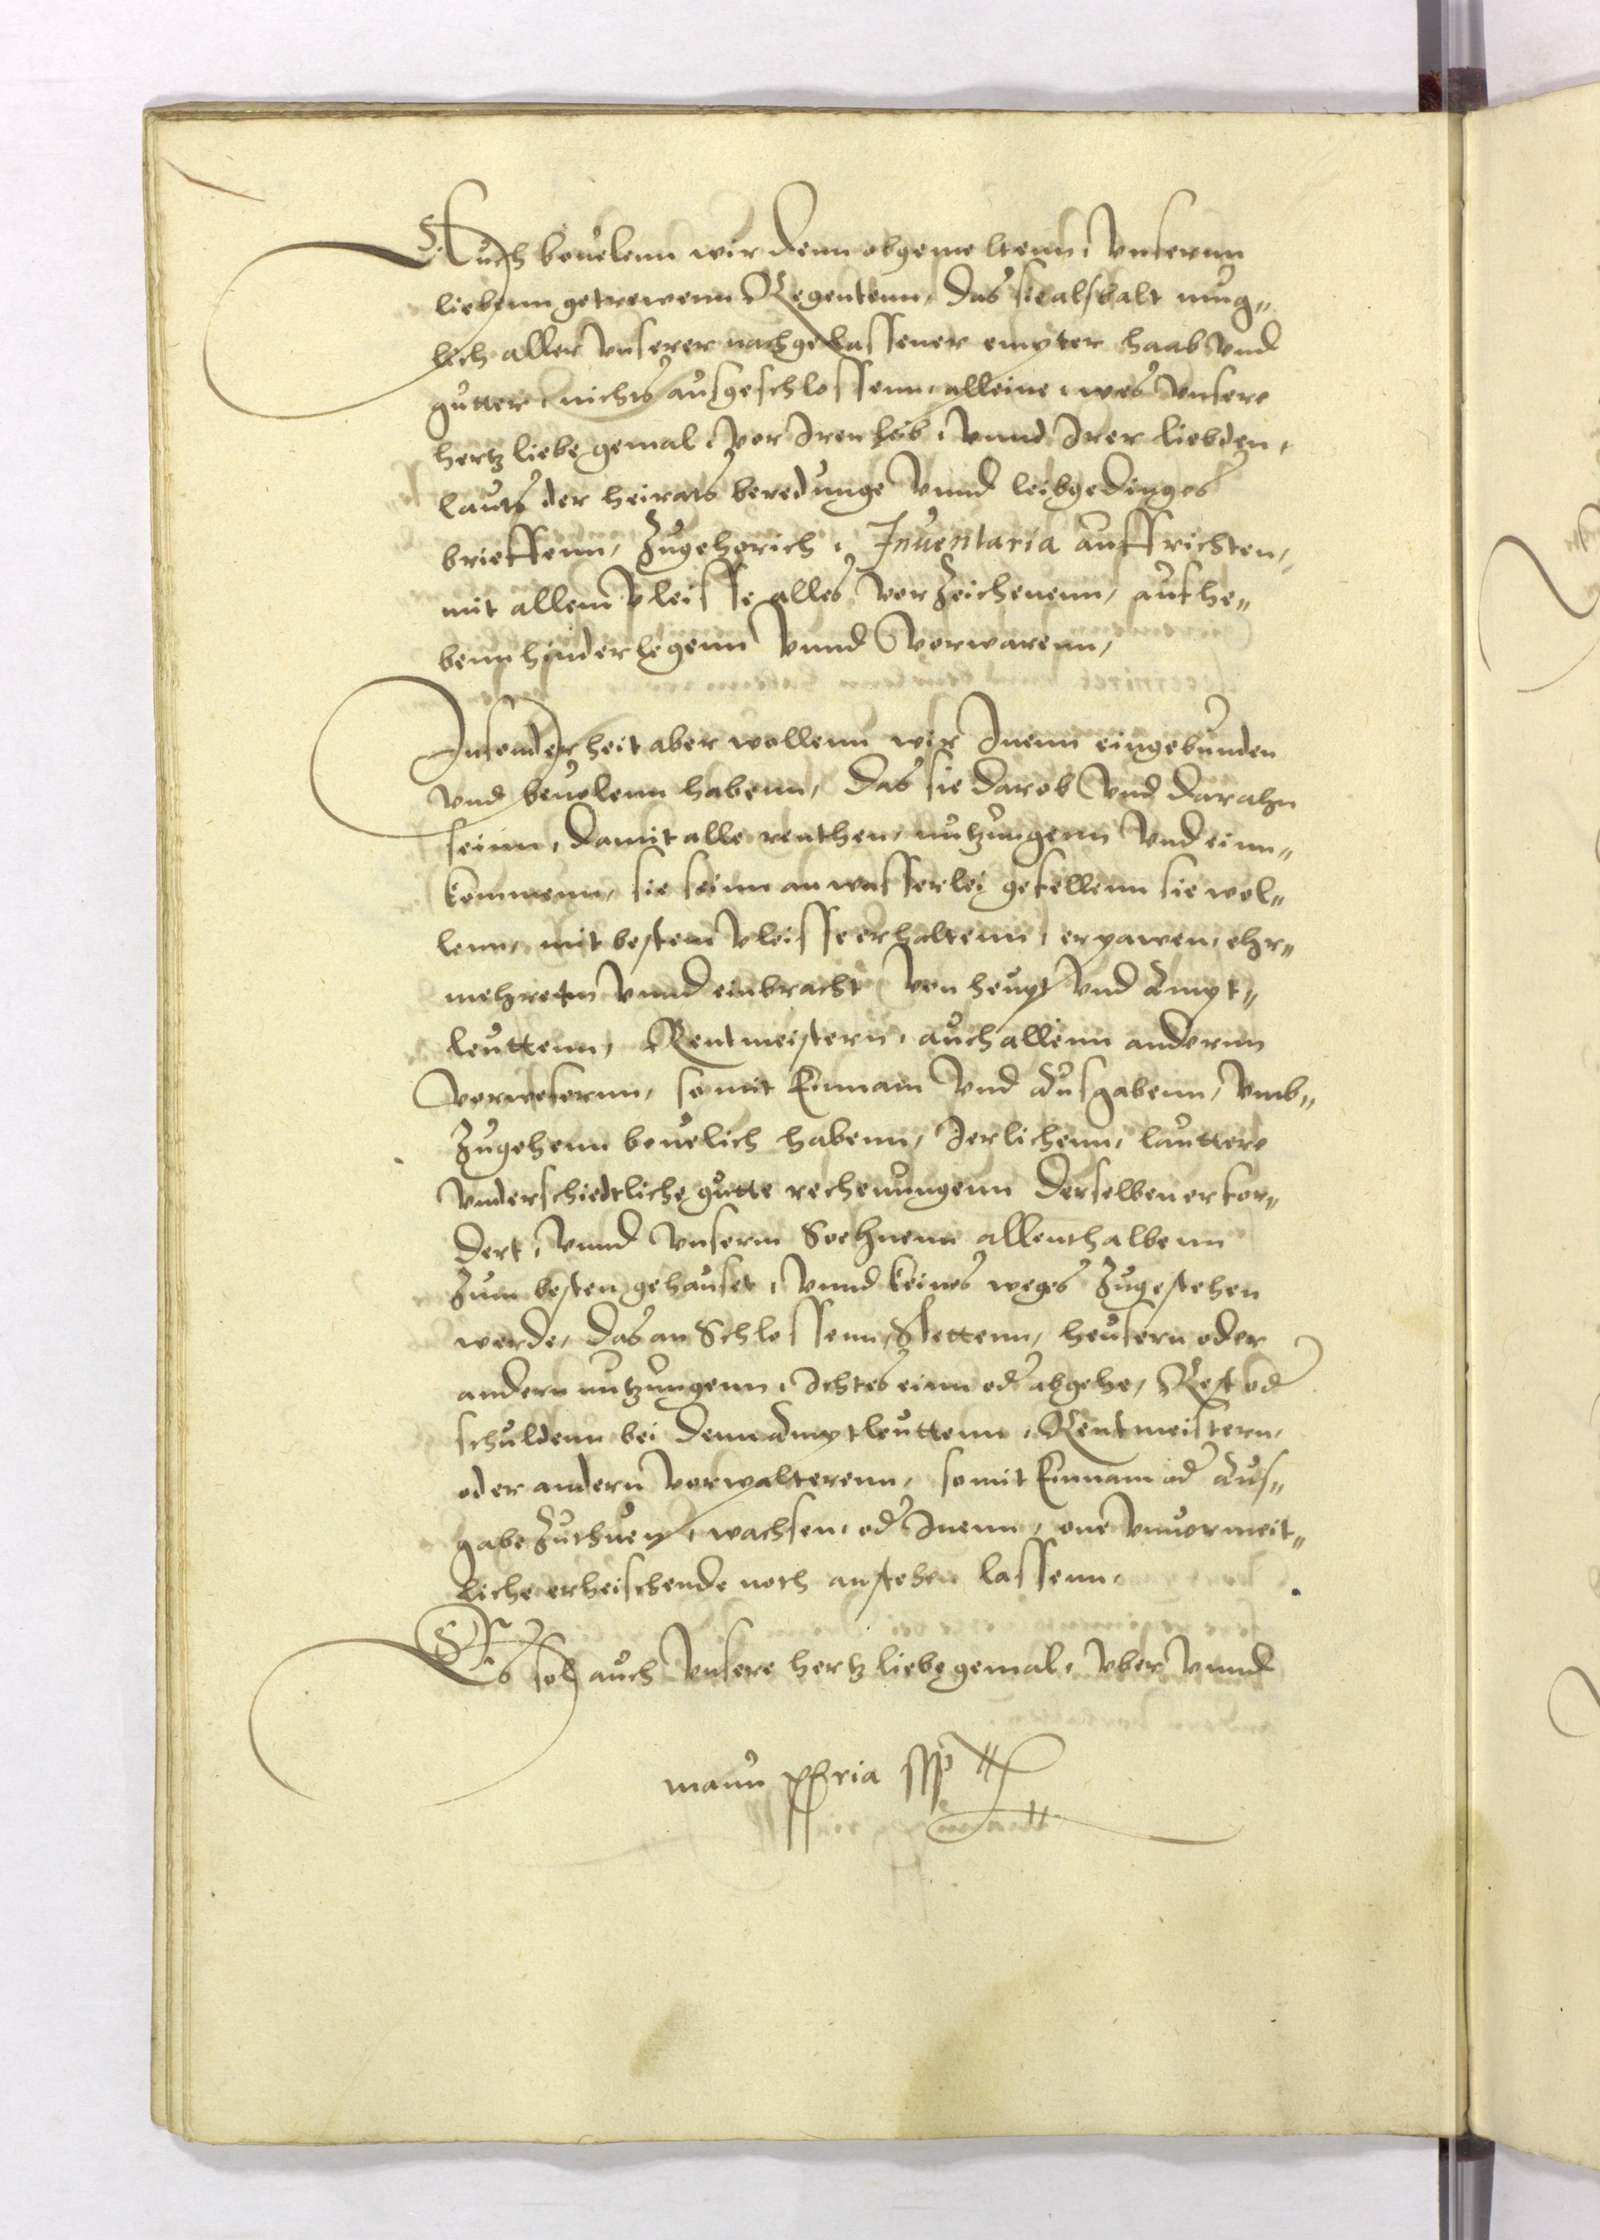 Auch beuelenn wir denn obgemeltenn, Vnsernn
liebenn getrewenn Regentenn, das sie alsbalt mug„
lich aller Vnserer nachgelassener empter haab Vnd
gutter, nichts ausgeschlossenn, alleine, wes Vnsere
hertz liebe gemal, Vor Iren leib, Vnnd Irer liebden,
lauts der heirats beredunge Vnnd leibgedinges
brieffenn, Zugehorich, Inuentaria auffrichten,
mit allem Vleisse alles Vor Zeichenenn, aufhe„
benn hinderlegenn Vnnd Vorwarenn,
Insonderheit aber wollenn wir Inenn eingebunden
Vnd beuelenn habenn, das sie darob Vnd darahn
seinn, damit alle renthen, nutzungenn Vnd einn„
kommenn, sie seinn an wasserlei gefellenn sie wol„
lenn, mit bestem Vleisse erhaltenn, erpawen, ehr„
mehretnn Vnnd einbracht Von heupt Vnd Ampt„
leuttenn, Rentmeistern, auch allenn andernn
Vorwesernn, so mit Einnam Vnd Ausgabenn, Vmb„
Zugehenn beuelich habenn, Jerlichenn, lauttere
Vnderschiedtliche gutte rechenungenn derselben erfor„
dert, Vnnd Vnserm Soehnenn allenthalbenn
Zum besten gehauset, Vnnd keines weges Zugestehen
werde, das an Schlossenn, Stettenn, heusern oder
andern nutzungenn, Ichtes einn od abgehe, Rest od
schuldenn bei denn Amptleuttenn, Rentmeistern,
oder andern Vorwalterenn, so mit Einnam od Aus„
gabe Zuthuen, wachsen, od Inenn, one Vnuormeit„
liche erheischende noth anstehen lassenn,
Es sol auch Vnsere hertz liebe gemal, Vber Vnnd
manu ppria sspt